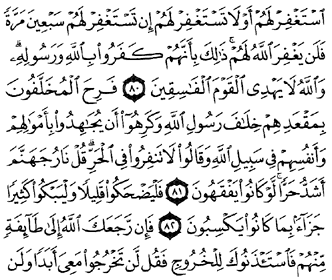 ٱسۡتَغۡفِرۡ لَهُمۡ أَوۡ لَا تَسۡتَغۡفِرۡ لَهُمۡ إِن تَسۡتَغۡفِرۡ لَهُمۡ سَبۡعِينَ مَرَّةٗ
فَلَن يَغۡفِرَ ٱللَّهُ لَهُمۡۚ ذَٰلِكَ بِأَنَّهُمۡ كَفَرُواْ بِٱللَّهِ وَرَسُولِهِۦۗ
وَٱللَّهُ لَا يَهۡدِي ٱلۡقَوۡمَ ٱلۡفَٰسِقِينَ ٨٠ فَرِحَ ٱلۡمُخَلَّفُونَ
بِمَقۡعَدِهِمۡ خِلَٰفَ رَسُولِ ٱللَّهِ وَكَرِهُوٓاْ أَن يُجَٰهِدُواْ بِأَمۡوَٰلِهِمۡ
وَأَنفُسِهِمۡ فِي سَبِيلِ ٱللَّهِ وَقَالُواْ لَا تَنفِرُواْ فِي ٱلۡحَرِّۗ قُلۡ نَارُ جَهَنَّمَ
أَشَدُّ حَرّٗاۚ لَّوۡ كَانُواْ يَفۡقَهُونَ ٨١ فَلۡيَضۡحَكُواْ قَلِيلٗا وَلۡيَبۡكُواْ كَثِيرٗا
جَزَآءَۢ بِمَا كَانُواْ يَكۡسِبُونَ ٨٢ فَإِن رَّجَعَكَ ٱللَّهُ إِلَىٰ طَآئِفَةٖ
مِّنۡهُمۡ فَٱسۡتَـٔۡذَنُوكَ لِلۡخُرُوجِ فَقُل لَّن تَخۡرُجُواْ مَعِيَ أَبَدٗا وَلَن